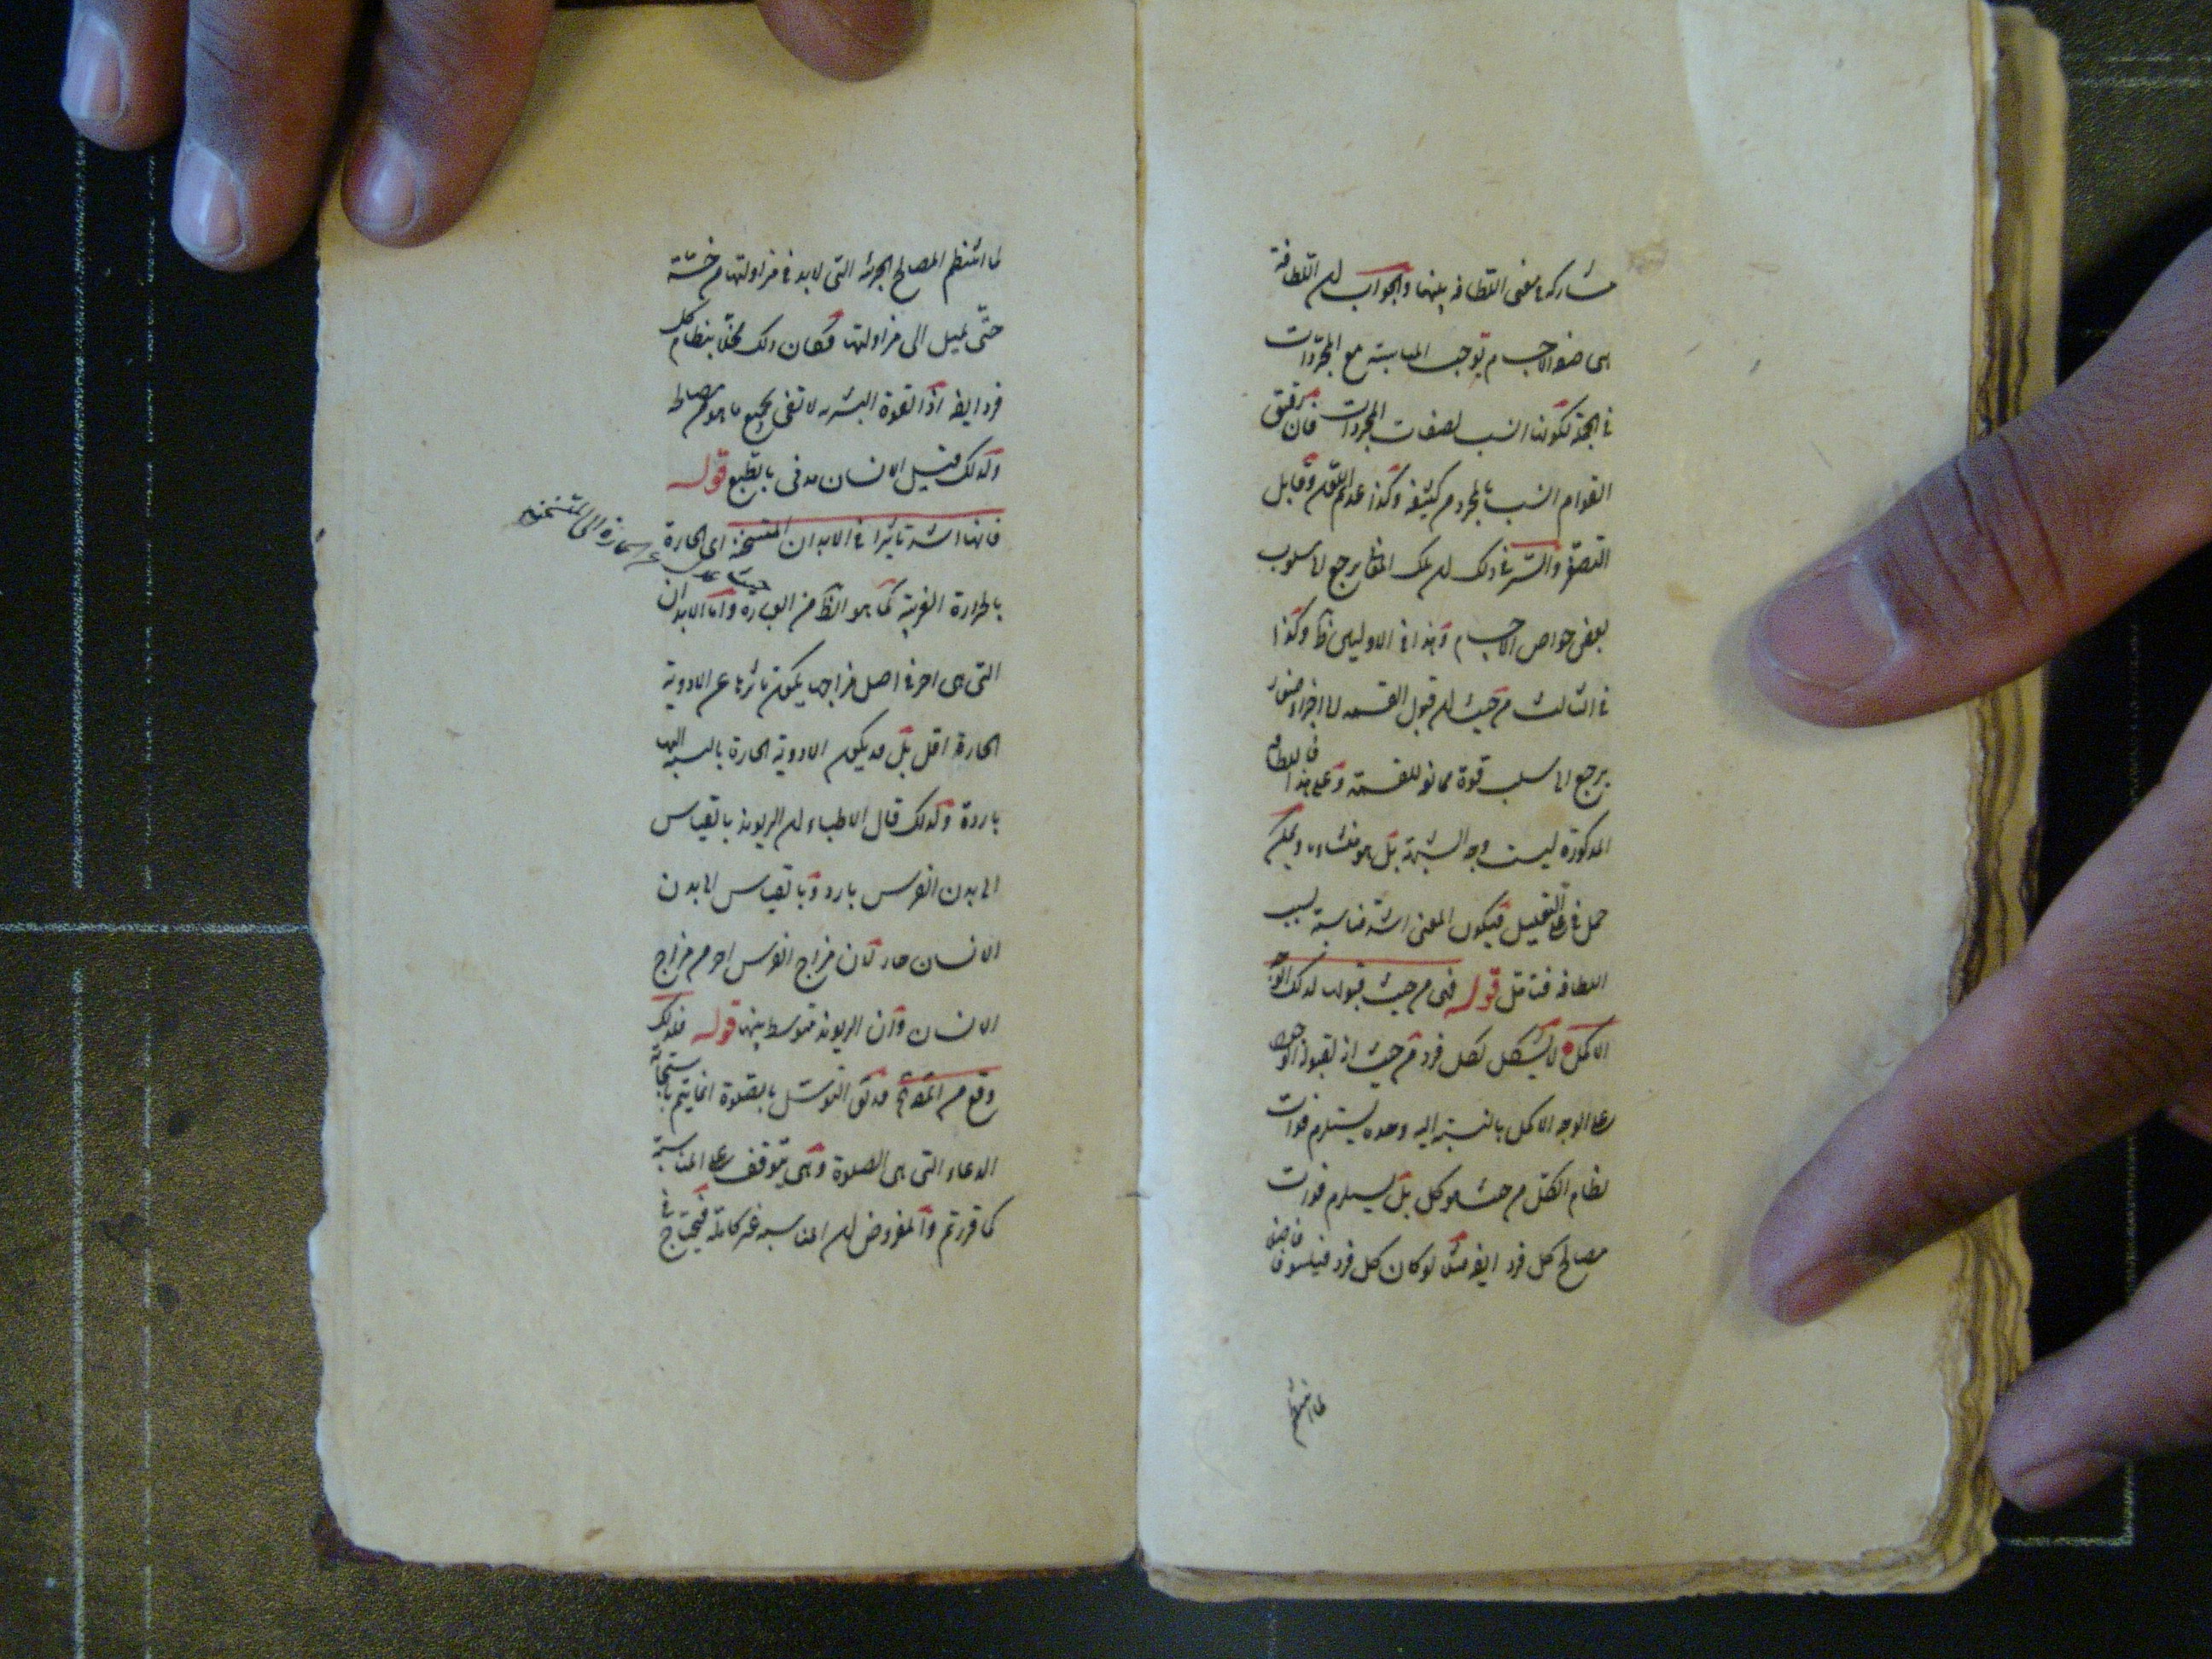 مشاركة في معنى اللطافة بينهما والجواب ان اللطافة
في الجملة لكونها انسب لصفات المجردات فان رقيق
القوام انسب بالمجرد من كثيفه وكذا عديم اللون وقابل
التصغر والسر في ذلك ان تلك المعاني يرجع الى سلوب
بعض خواص الاجسام وهذا في الاوليين ظ وكذا
في الثالث من حيث ان قبول القسمة الى اجزاء صغار
يرجع الى سلب قوة ممانعة للقسمة وعلى هذا فاللطافة
المذكورة ليست وجه الشبه بل هو منشاءه ويمكن
حمل في على التعليل فيكون المعنى اشد مناسبة بسبب
اللطافة فتامل قوله فمن حيث قبوله لذلك الوجه
الاكمل لا يشكل لكل فرد من حيث انه لقبوله الوجود
على الوجه الاكمل بالنسبة اليه وحده يستلزم فوات
نظام الكل من حيث هو كل بل يستلزم فوات
مصالح كل فرد ايضا مثلا لو كان كل فرد فيلسوفا فاضلا
لما انتظم
لما انتظم المصالح الجزئية التي لابد في مزاولتها من خسة
حتى يميل الى مزاولتها فكان ذلك مخلا بنظام كل
فرد ايضا اذ القوة البشرية لا تفي بجميع ما هو من مصالحه
ولذلك قيل الانسان مدني بالطبع قوله
فانها اشد تاثيرا في الابدان المتسخنة اى الحارة
بالحرارة الغريبة كما هو الظ من العبارة واما الابدان
التي هي احر في اصل مزاجها يكون تاثرها عن الادوية
الحارة اقل بل قد يكون الادوية الحارة بالنسبة اليها
باردة ولذلك قال الاطباء ان الريوند بالقياس
الى بدن الفرس بارد وبالقياس الى بدن
الانسان حار لان مزاج الفرس احر من مزاج
الانسان وان الريوند متوسط بينهما قوله فلذلك
التوسل بالصلوة انما يتم باستجابة
الدعاء التي هي الصلوة وهي يتوقف على المناسبة
كما قررتم والمفروض ان المناسبة غير كاملة فيحتاج في